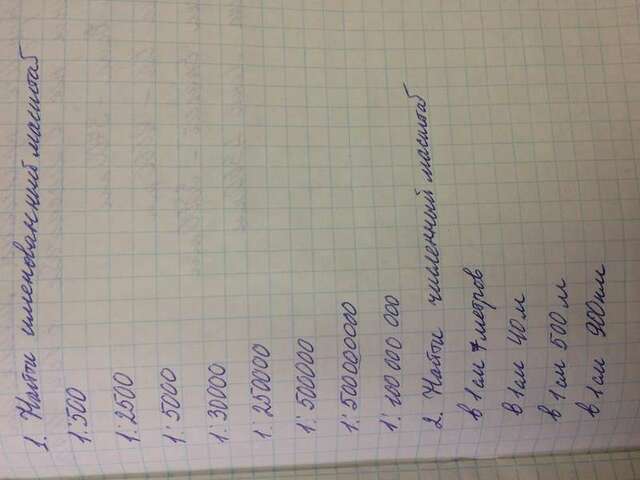 1. Найти именованный масштаб
1:500
1:2500
1:5000
1:30000
1:250000
1:500000
1:500000000
1:100 000 000
2. Найти численный масштаб
в 1 см 7 метров
в 1 см 40 м
в 1 см 500 м
в 1 см 900 км